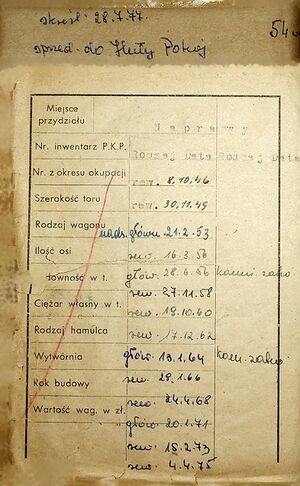 skreśl. 28.7.77.
sprzed. do Huty Pokój
54
Miejsce przydziału
Naprawy
Nr. inwentarz P.K.P. Rodzaj Data Rodzaj Data
Nr. z okresu okupacji rew. 8.10.46
Szerokość toru rew. 30.11.49
Rodzaj wagonu nads. główn 21.2.53
Ilość osi rew. 16.3.56
Nowność w t. głów. 28.6.56
rew. 27.11.58
Ciężar własny w t. rew. 19.10.60
Rodzaj hamulca rew. 17.12.62
Wytwórnia głów 13.1.64
Rok budowy rew. 29.1.66
Wartość wag. w zł. rew. 24.4.68
głów 20.1.71
rew. 15.2.73
rew. 4.4.75